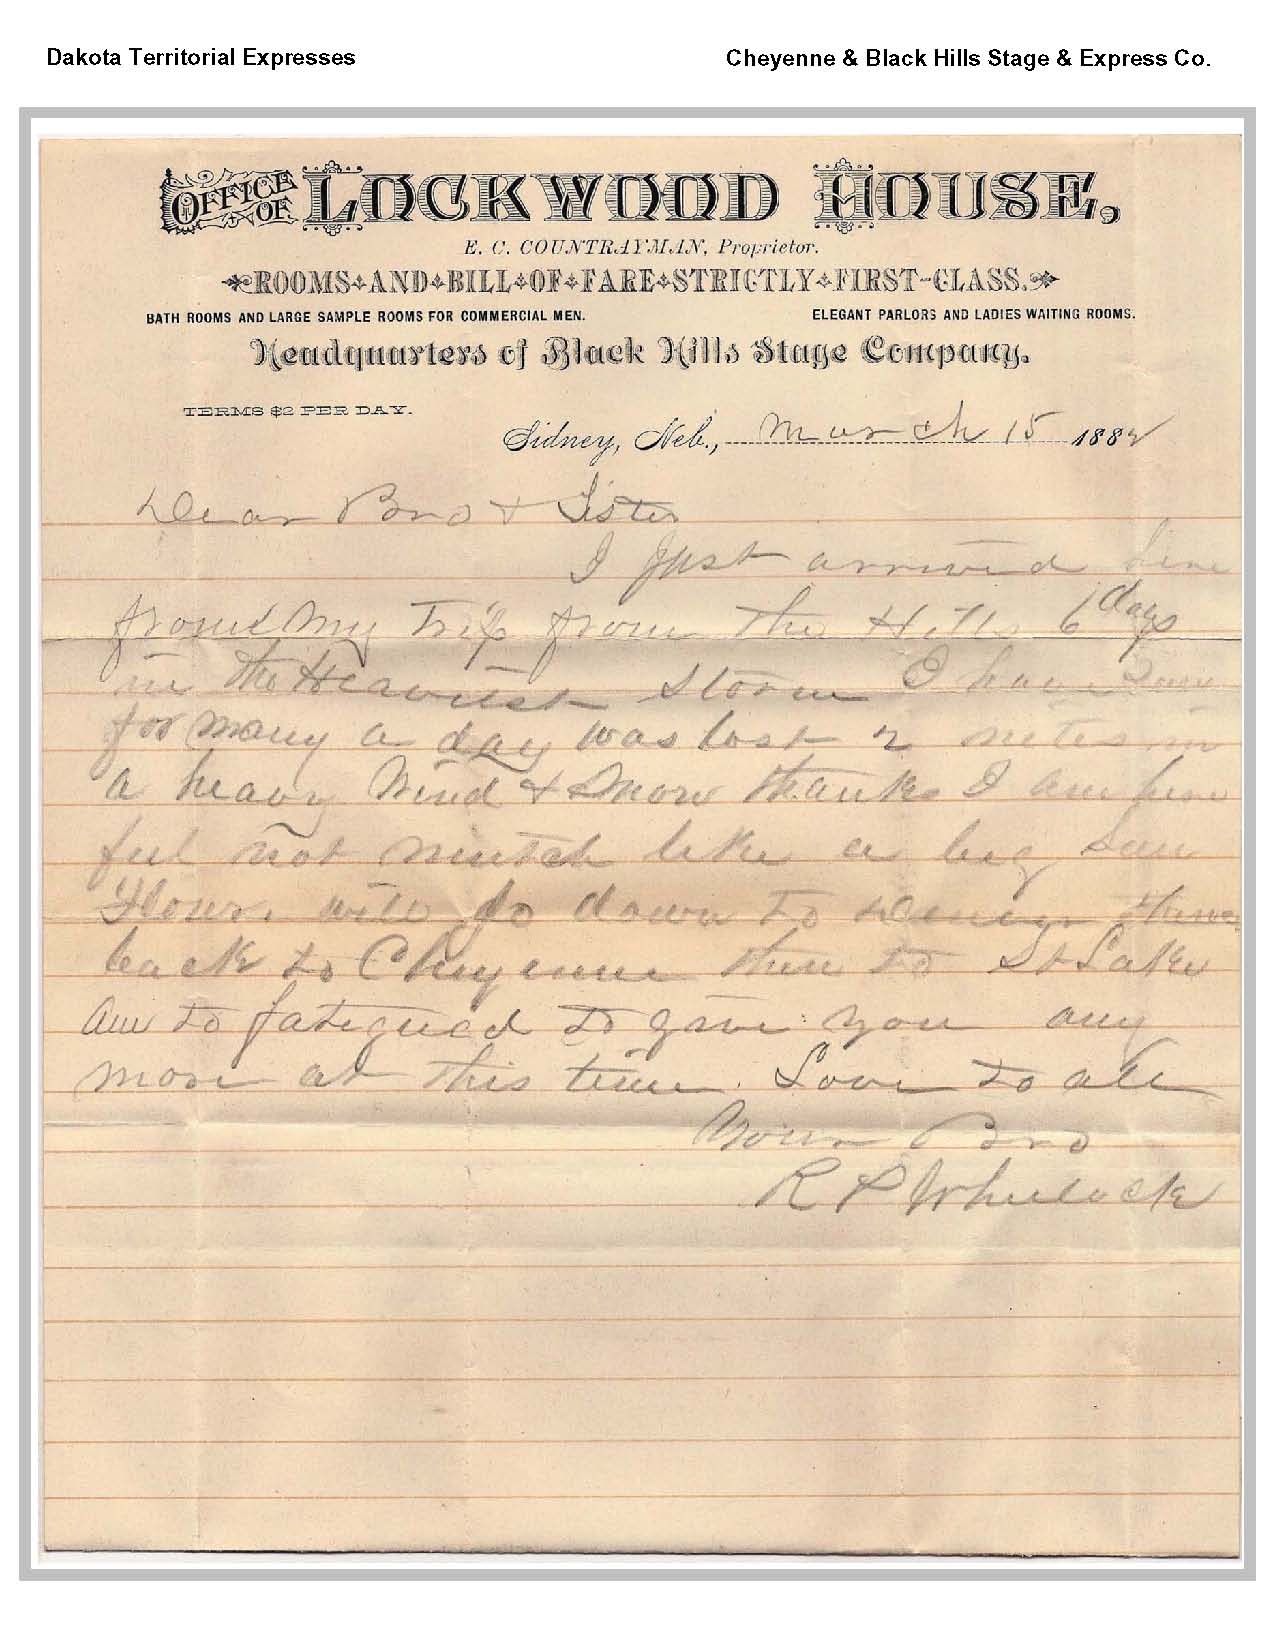 Dakota Territorial Expresses
Cheyenne & Black Hills Stage & Express Co.
OFFICE OF LOCKWOOD HOUSE,
E. C. COUNTRAYMAN, Proprietor.
ROOMS AND BILL OF FARE STRICTLY FIRST-CLASS.
BATH ROOMS AND LARGE SAMPLE ROOMS FOR COMMERCIAL MEN.
ELEGANT PARLORS AND LADIES WAITING ROOMS.
Headquarters of Black Hills Stage Company.
TERMS $2 PER DAY.
Sidney, Neb., March 15 1882
Dear Bro & Sister
I Just arrived here
from My Trip from the Hills 6 days
in the Heaviest Storm I have
for many a day was lost 2 in
a heavy Wind & Snow thanks I am here
feel not mutch like a big Sun
Flour. will go down to Denver then
back to Cheyenne then to St Lake
Am to fatigued to give you any
more at this time. Love to all
Your Bro
R P Wheelock